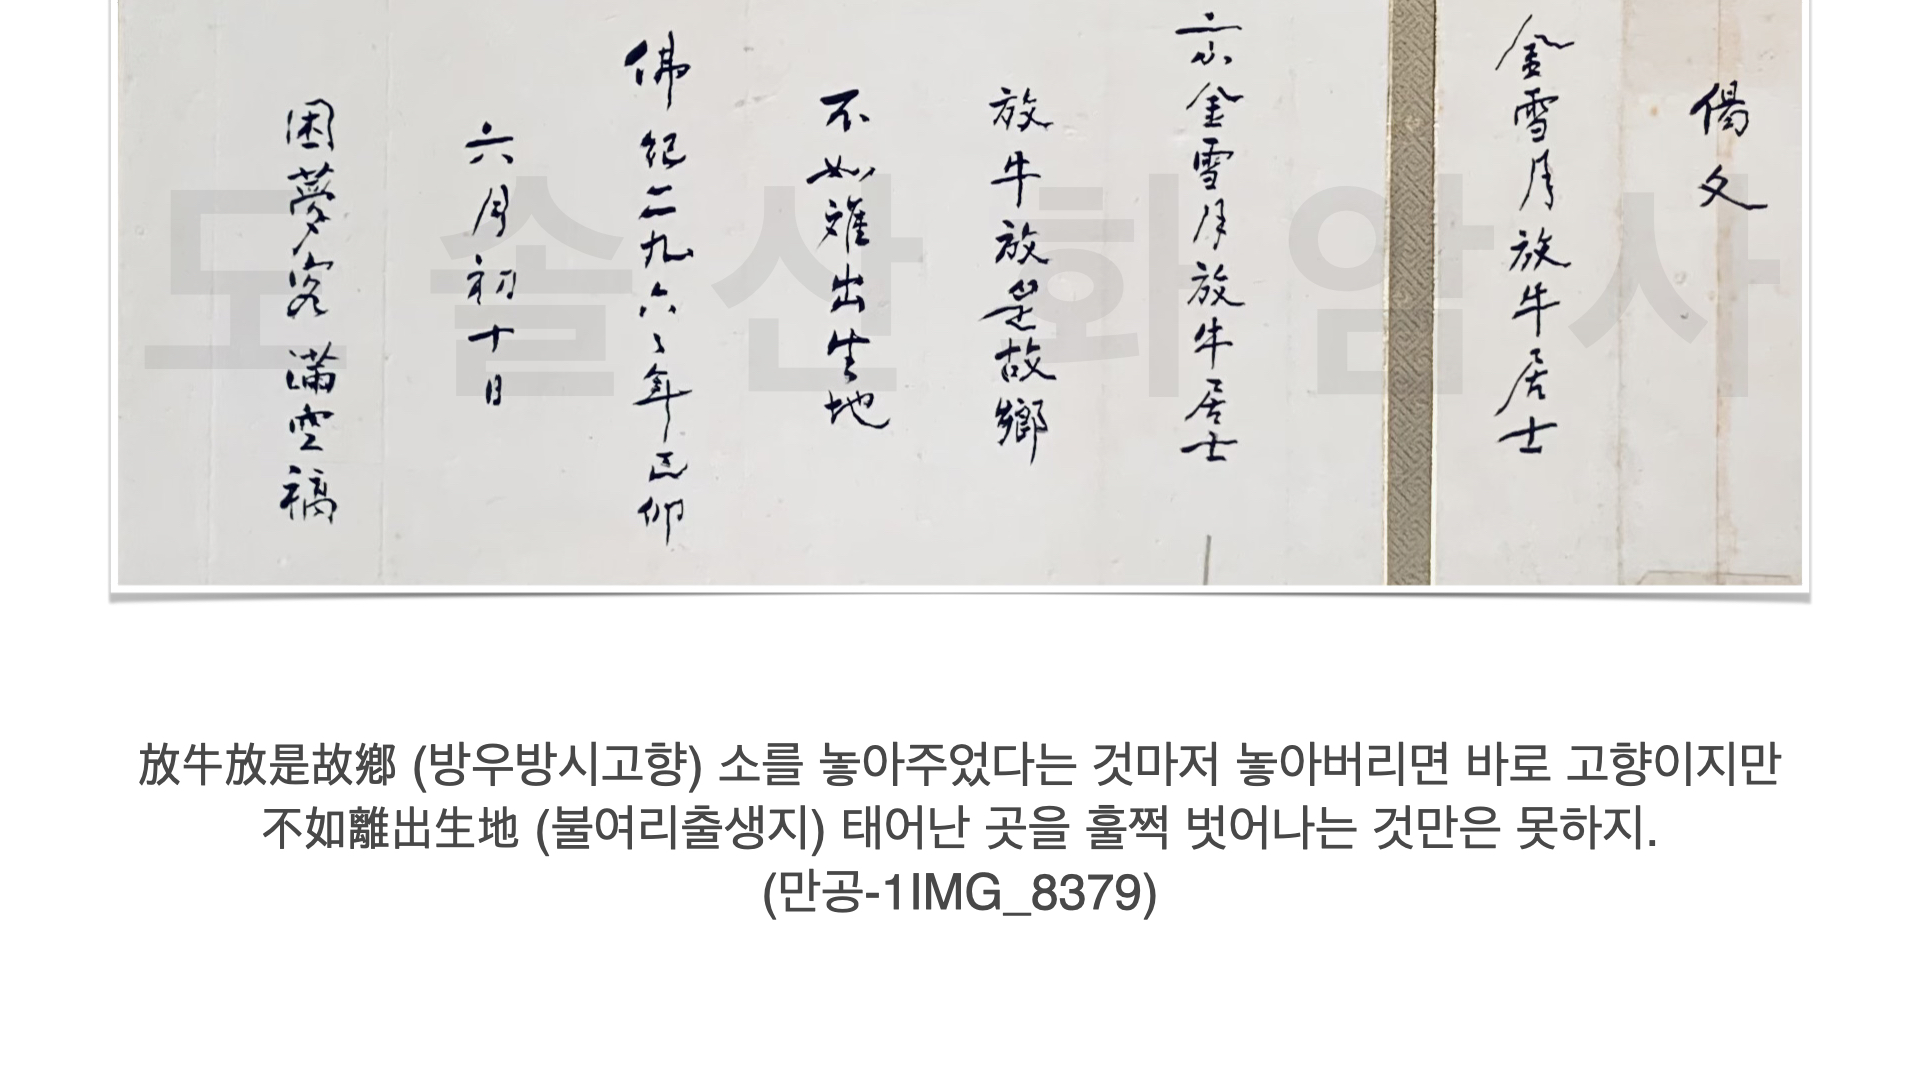 偈文
金雪月放牛居士
示金雪月放牛居士
放牛放是故鄕
不如難出生地
佛紀二九六六年己卯
六月初十日
困夢客 滿空稿
도솔산 화암사
放牛放是故鄕 (방우방시고향) 소를 놓아주었다는 것마저 놓아버리면 바로 고향이지만
不如離出生地 (불여리출생지) 태어난 곳을 훌쩍 벗어나는 것만은 못하지.
(만공-1IMG_8379)